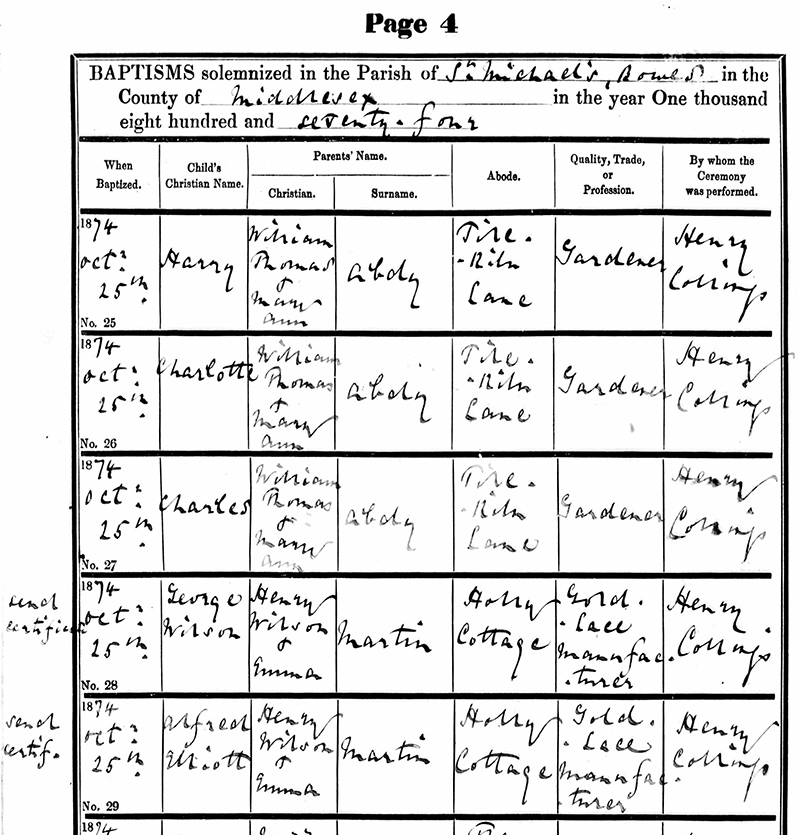 Page 4
BAPTISMS solemnized in the Parish of St Michael's, Bowes in the
County of Middlesex in the year One thousand
eight hundred and seventy-four
When Baptized.
Child's Christian Name.
Parents' Name.
Christian.
Surname.
Abode.
Quality, Trade, or Profession.
By whom the Ceremony was performed.
1874 Oct: 25th
No. 25
Harry
William Thomas & Mary Ann
Abdy
Tile-Kiln Lane
Gardener
Henry Collings
1874 Oct: 25th
No. 26
Charlotte
William Thomas & Mary Ann
Abdy
Tile-Kiln Lane
Gardener
Henry Collings
1874 Oct: 25th
No. 27
Charles
William Thomas & Mary Ann
Abdy
Tile-Kiln Lane
Gardener
Henry Collings
send certificate
1874 Oct: 25th
No. 28
George Wilson
Henry Wilson & Emma
Martin
Holly Cottage
Gold-Lace Manufacturer
Henry Collings
send certif.
1874 Oct: 25th
No. 29
Alfred Elliott
Henry Wilson & Emma
Martin
Holly Cottage
Gold-Lace Manufacturer
Henry Collings
1874